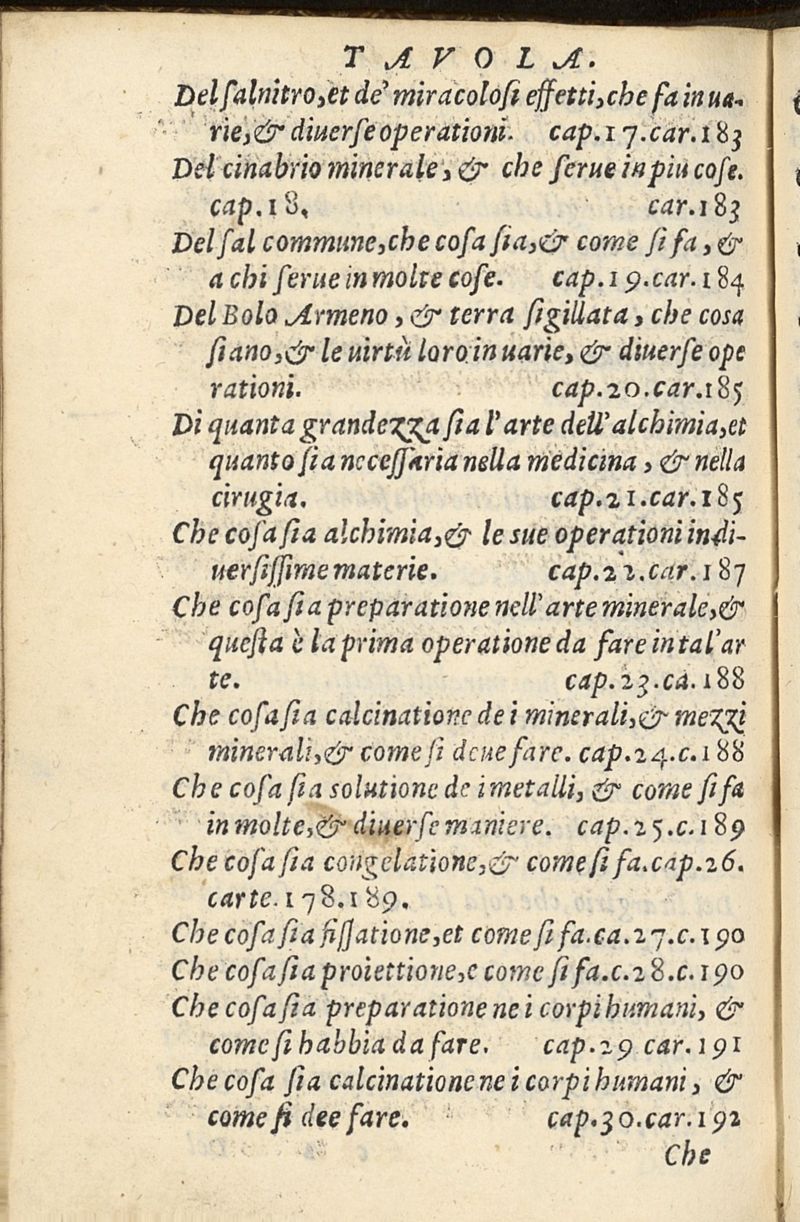 TAVOLA.
Del salnitro, et de' miracolosi effetti, che fa in ua-
rie, & diuerse operationi. cap.17.car.183
Del cinabrio minerale, & che serue in piu cose.
cap.18. car.183
Del sal commune, che cosa sia, & come si fa, &
a chi serue in molte cose. cap.19.car.184
Del Bolo Armeno, & terra sigillata, che cosa
siano, & le uirtù loro in uarie, & diuerse ope
rationi. cap.20.car.185
Di quanta grandezza sia l'arte dell'alchimia, et
quanto sia necessaria nella medicina, & nella
cirugia. cap.21.car.185
Che cosa sia alchimia, & le sue operationi in di-
uersissime materie. cap.22.car.187
Che cosa sia preparatione nell'arte minerale, &
questa è la prima operatione da fare in tal'ar
te. cap.23.ca.188
Che cosa sia calcinatione de i minerali, & mezzi
minerali, & come si deue fare. cap.24.c.188
Che cosa sia solutione de i metalli, & come si fa
in molte, & diuerse maniere. cap.25.c.189
Che cosa sia congelatione, & come si fa.cap.26.
carte.178.189.
Che cosa sia fissatione, et come si fa.ca.27.c.190
Che cosa sia proiettione, e come si fa.c.28.c.190
Che cosa sia preparatione ne i corpi humani, &
come si habbia da fare. cap.29 car.191
Che cosa sia calcinatione ne i corpi humani, &
come si dee fare. cap.30.car.192
Che